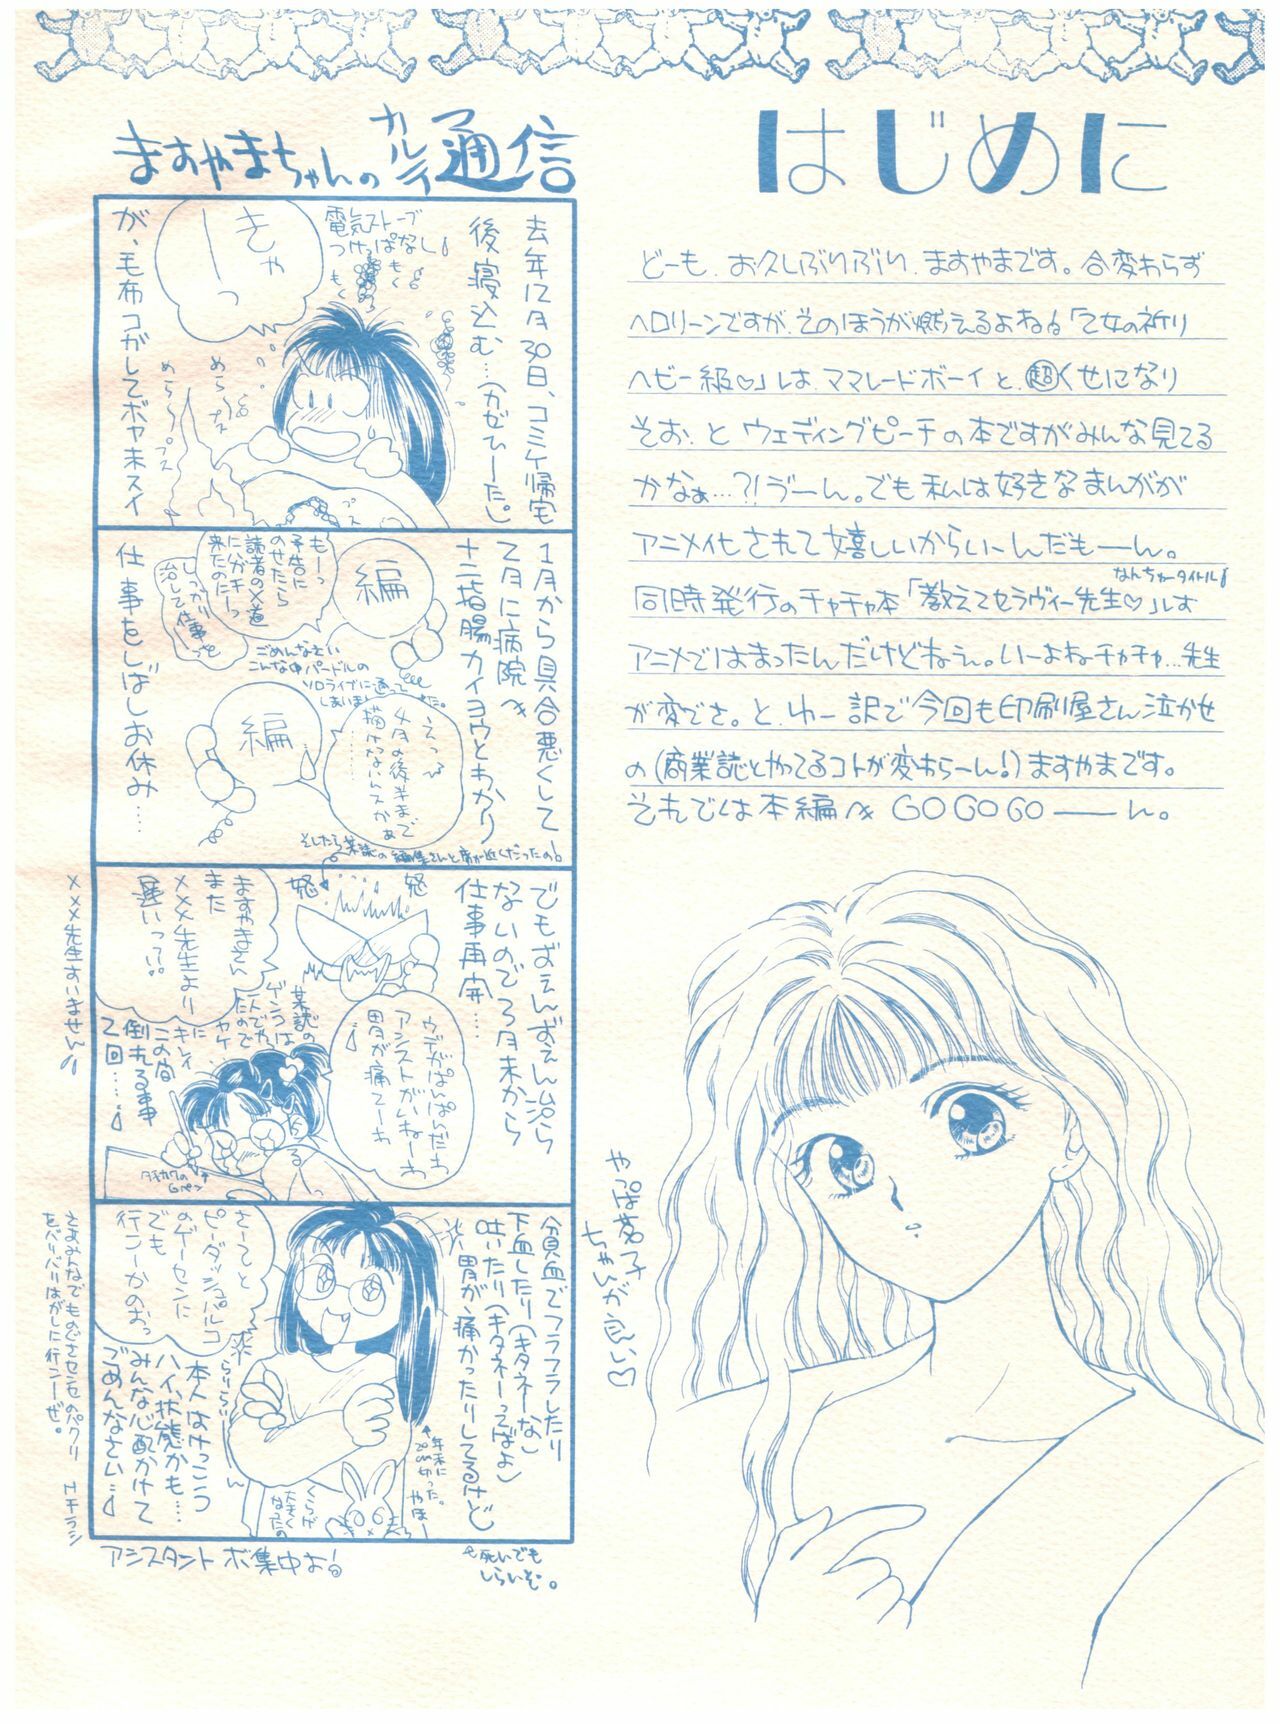 はじめに
どーも、お久しぶりぶり、ますやまです。合変わらず
ヘロリーンですが、そのほうが燃えるよねっ「乙女の祈り
ヘビー級♡」しは、ママレードボーイと、超くせになり
そお、と ウェディングピーチの本ですがみんな見てる
かなぁ…?!ゔーん。でも私は好きなまんがが
アニメ化されて嬉しいからいーんだもーーん。
なんちゅータイトル
同時発行のチャチャ本「教えてセラヴィー先生♡」しは
アニメではまったんだけどねぇ。いーよねチャチャ…先生
が変でさ。と、ゆー訳で今回も印刷屋さん泣かせ
の(商業誌とやってるコトが変わらーん!)ますやまです。
それでは本編へ GO GO GO ――ん。
やっぱ茗子
ちゃんが良い♡
ますやまちゃんの カルテ 通信
去年12月30日、コミケ帰宅
後寝込む…(カゼひーた。)
電気ストーブ
つけっぱなし
もく
もく
きゃ
ーっ
が、毛布コがしてボヤ未スイ
めらっ
プス
めらっ
プス
プス
1月から具合悪くして
2月に病院へ
十二指腸カイヨウとわかり
編
もーっ
予告に
のせたら
読者の×道
に分がキーっ
来たのにーっ
しっかり
治して仕事を
ごめんなさい
こんな中バードルの
ソロライブに通って
しまいました。
編
えっ
4月の後半まで
描けないんスかぁ
仕事をしばしお休み…
そしたら某誌の編集さんと席が近くだったの!
でもずぇんずぇん治ら
ないので3月末から
仕事再開…
怒
怒
ウデがぱんぱんだわ
アシストがいねーわ
胃が痛てーわ
ますやまさん
また
×××先生より
遅いって…
×××先生すいません
某誌の
ゲンコウは
一人でやっ
たので
キレイ
に
この間
倒れる事
2回…
タチカワの
Gペン
貧血でフラフラしたり
下血したり(キタネーな)
吐いたり(キタネーってばよ)
胃が痛かったりしてるけど
さーてと
ピーダッシュパルコ
のゲーセンに
でも
行こーかのおっ
らりらりーん
本人はけっこう
ハイ状態かも…
みんな心配かけて
ごめんなさい…
年末に
20cm切った。
やほー
くらげ
大きく
なったの
さあみんなでものごさセンセのパクリ
をバリバリはがしに行こーぜ。
Hチラシ
アシスタントボ集中よ
死いでも
しらいそ。